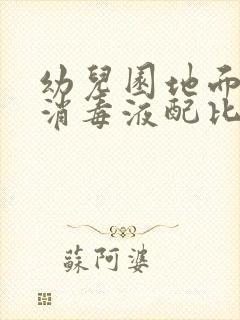 幼兒園地面
消毒液配比
蘇阿婆